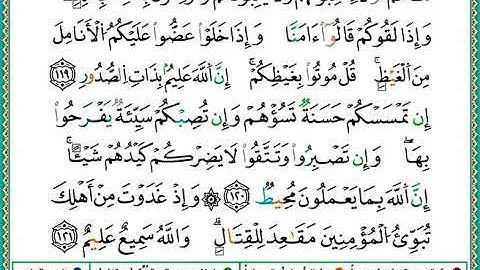 وَإِذَا لَقُوكُمْ قَالُوٓا۟ ءَامَنَّا وَإِذَا خَلَوْا۟ عَضُّوا۟ عَلَيْكُمُ ٱلْأَنَامِلَ
مِنَ ٱلْغَيْظِ ۚ قُلْ مُوتُوا۟ بِغَيْظِكُمْ ۗ إِنَّ ٱللَّهَ عَلِيمٌۢ بِذَاتِ ٱلصُّدُورِ ﴿١١٩﴾
إِن تَمْسَسْكُمْ حَسَنَةٌ تَسُؤْهُمْ وَإِن تُصِبْكُمْ سَيِّئَةٌ يَفْرَحُوا۟
بِهَا ۖ وَإِن تَصْبِرُوا۟ وَتَتَّقُوا۟ لَا يَضُرُّكُمْ كَيْدُهُمْ شَيْـًٔا ۗ
إِنَّ ٱللَّهَ بِمَا يَعْمَلُونَ مُحِيطٌ ﴿١٢٠﴾ ۞ وَإِذْ غَدَوْتَ مِنْ أَهْلِكَ
تُبَوِّئُ ٱلْمُؤْمِنِينَ مَقَـٰعِدَ لِلْقِتَالِ ۗ وَٱللَّهُ سَمِيعٌ عَلِيمٌ ﴿١٢١﴾